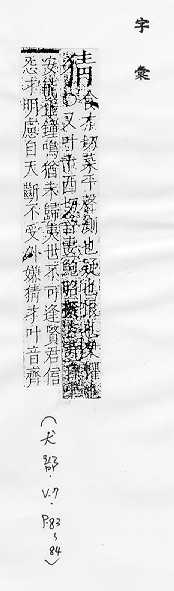 字彙
猜
倉才切菜平聲測也疑也恨也又懼也
〇又叶西切音妻鮑照
安能止鐘鳴猶未歸夷世不可逢賢君信
愛才明慮自天斷不受外嫌猜才叶音齊
(犬部・V.7・P.83~84)